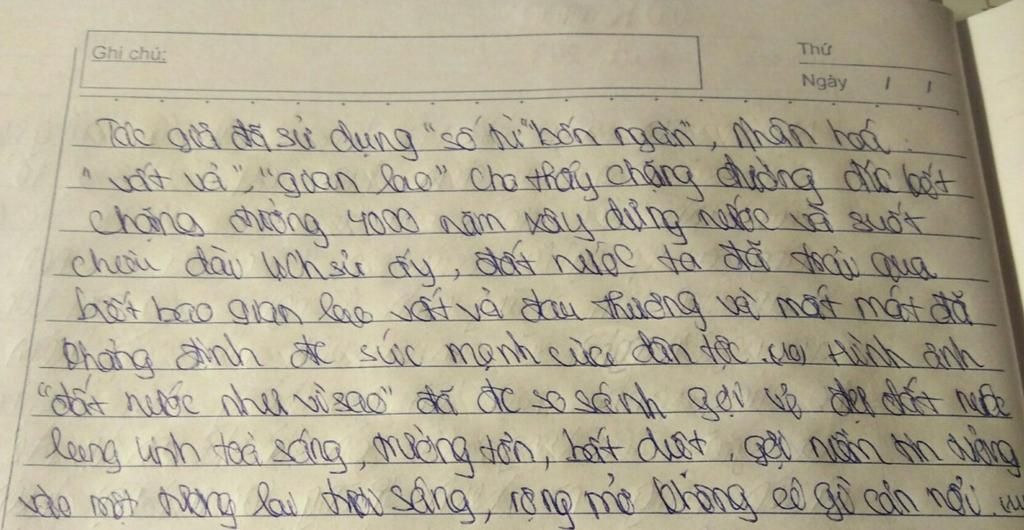 Ghi chú:
Thứ
Ngày / /
Tác giả đã sử dụng "số từ "bốn ngàn", nhân hoá:
"vất vả", "gian lao" cho thấy chặng đường đức bớt
chặng đường 4000 năm xây dựng nước và suốt
chiều dài lịch sử ấy, đất nước ta đã trải qua
biết bao gian lao vất vả đau thương và mất mát đã
khẳng định đc sức mạnh của dân tộc. Hình ảnh
"đất nước như vì sao" đã đc so sánh gợi vẻ đẹp đất nước
lung linh toả sáng, trường tồn, bất diệt, gợi niềm tin tưởng
vào một tương lai tươi sáng, rộng mở không có gì cản nổi.